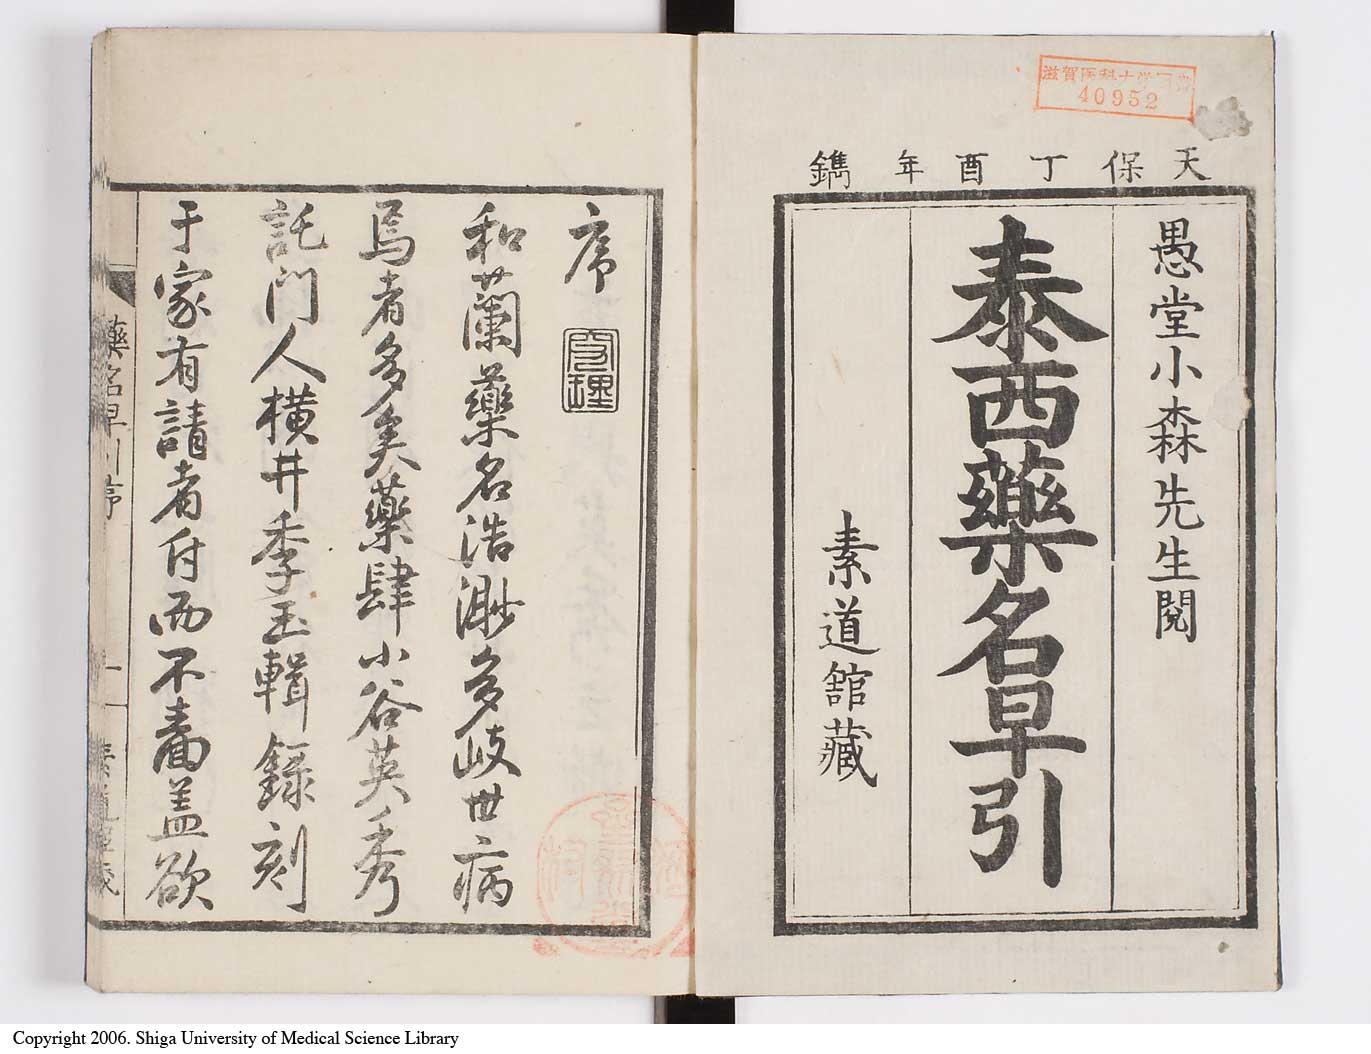 滋賀医科大学
40952
天保丁酉年鐫
愚堂小森先生閲
泰西藥名早引
素道舘藏
序
和蘭藥名浩渺多岐世病
焉者多矣藥肆小谷英秀
託門人横井季玉輯録刻
于家有請者付而不嗇盖欲
藥名早引序
一
Copyright 2006. Shiga University of Medical Science Library